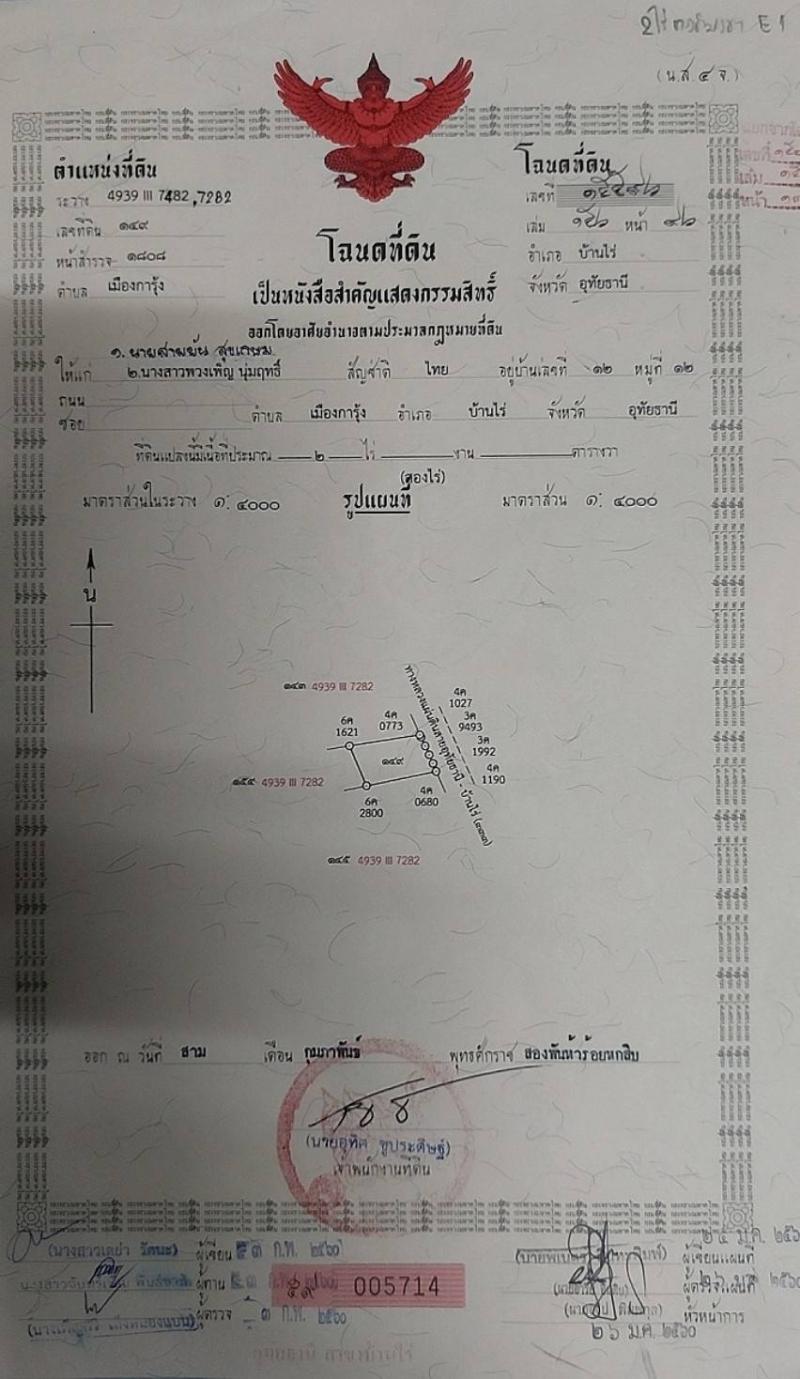 (น.ส. ๔ จ.)
ตำแหน่งที่ดิน
ระวาง 4939 III 7282
เลขที่ดิน ๑๔๙
หน้าสำรวจ ๑๘๐๘
ตำบล เมืองการุ้ง
โฉนดที่ดิน
เลขที่
เล่ม หน้า
อำเภอ บ้านไร่
จังหวัด อุทัยธานี
โฉนดที่ดิน
เป็นหนังสือสำคัญแสดงกรรมสิทธิ์
ออกโดยอาศัยอำนาจตามประมวลกฎหมายที่ดิน
ให้แก่ ๒.นางสาวพวงเพ็ญ นุ่มฤทธิ์ สัญชาติ ไทย อยู่บ้านเลขที่ ๑๒ หมู่ที่ ๑๒
ถนน
ซอย ตำบล เมืองการุ้ง อำเภอ บ้านไร่ จังหวัด อุทัยธานี
ที่ดินแปลงนี้มีเนื้อที่ประมาณ ๒ ไร่ งาน ตารางวา
(สองไร่)
มาตราส่วนในระวาง ๑: ๔๐๐๐ รูปแผนที่ มาตราส่วน ๑: ๔๐๐๐
น
๑๔๓ 4939 III 7282
ทางหลวงแผ่นดินสายอุทัยธานี - บ้านไร่ (๓๓๓)
4ค
1027
3ค
9493
3ค
1992
4ค
1190
6ค
1621
4ค
0773
๑๔๙
๑๕๔ 4939 III 7282
6ค
2800
4ค
0680
๑๔๕ 4939 III 7282
ออก ณ วันที่ สาม เดือน กุมภาพันธ์ พุทธศักราช สองพันห้าร้อยหกสิบ
(นายอุทิศ ชูประดิษฐ์)
เจ้าพนักงานที่ดิน
ผู้เขียน ๓ ก.พ. ๒๕๖๐
ผู้ทาน
ผู้ตรวจ ๓ ก.พ. ๒๕๖๐
005714
ผู้เขียนแผนที่
ผู้ตรวจแผนที่
หัวหน้าการ
๒๖ ม.ค. ๒๕๖๐